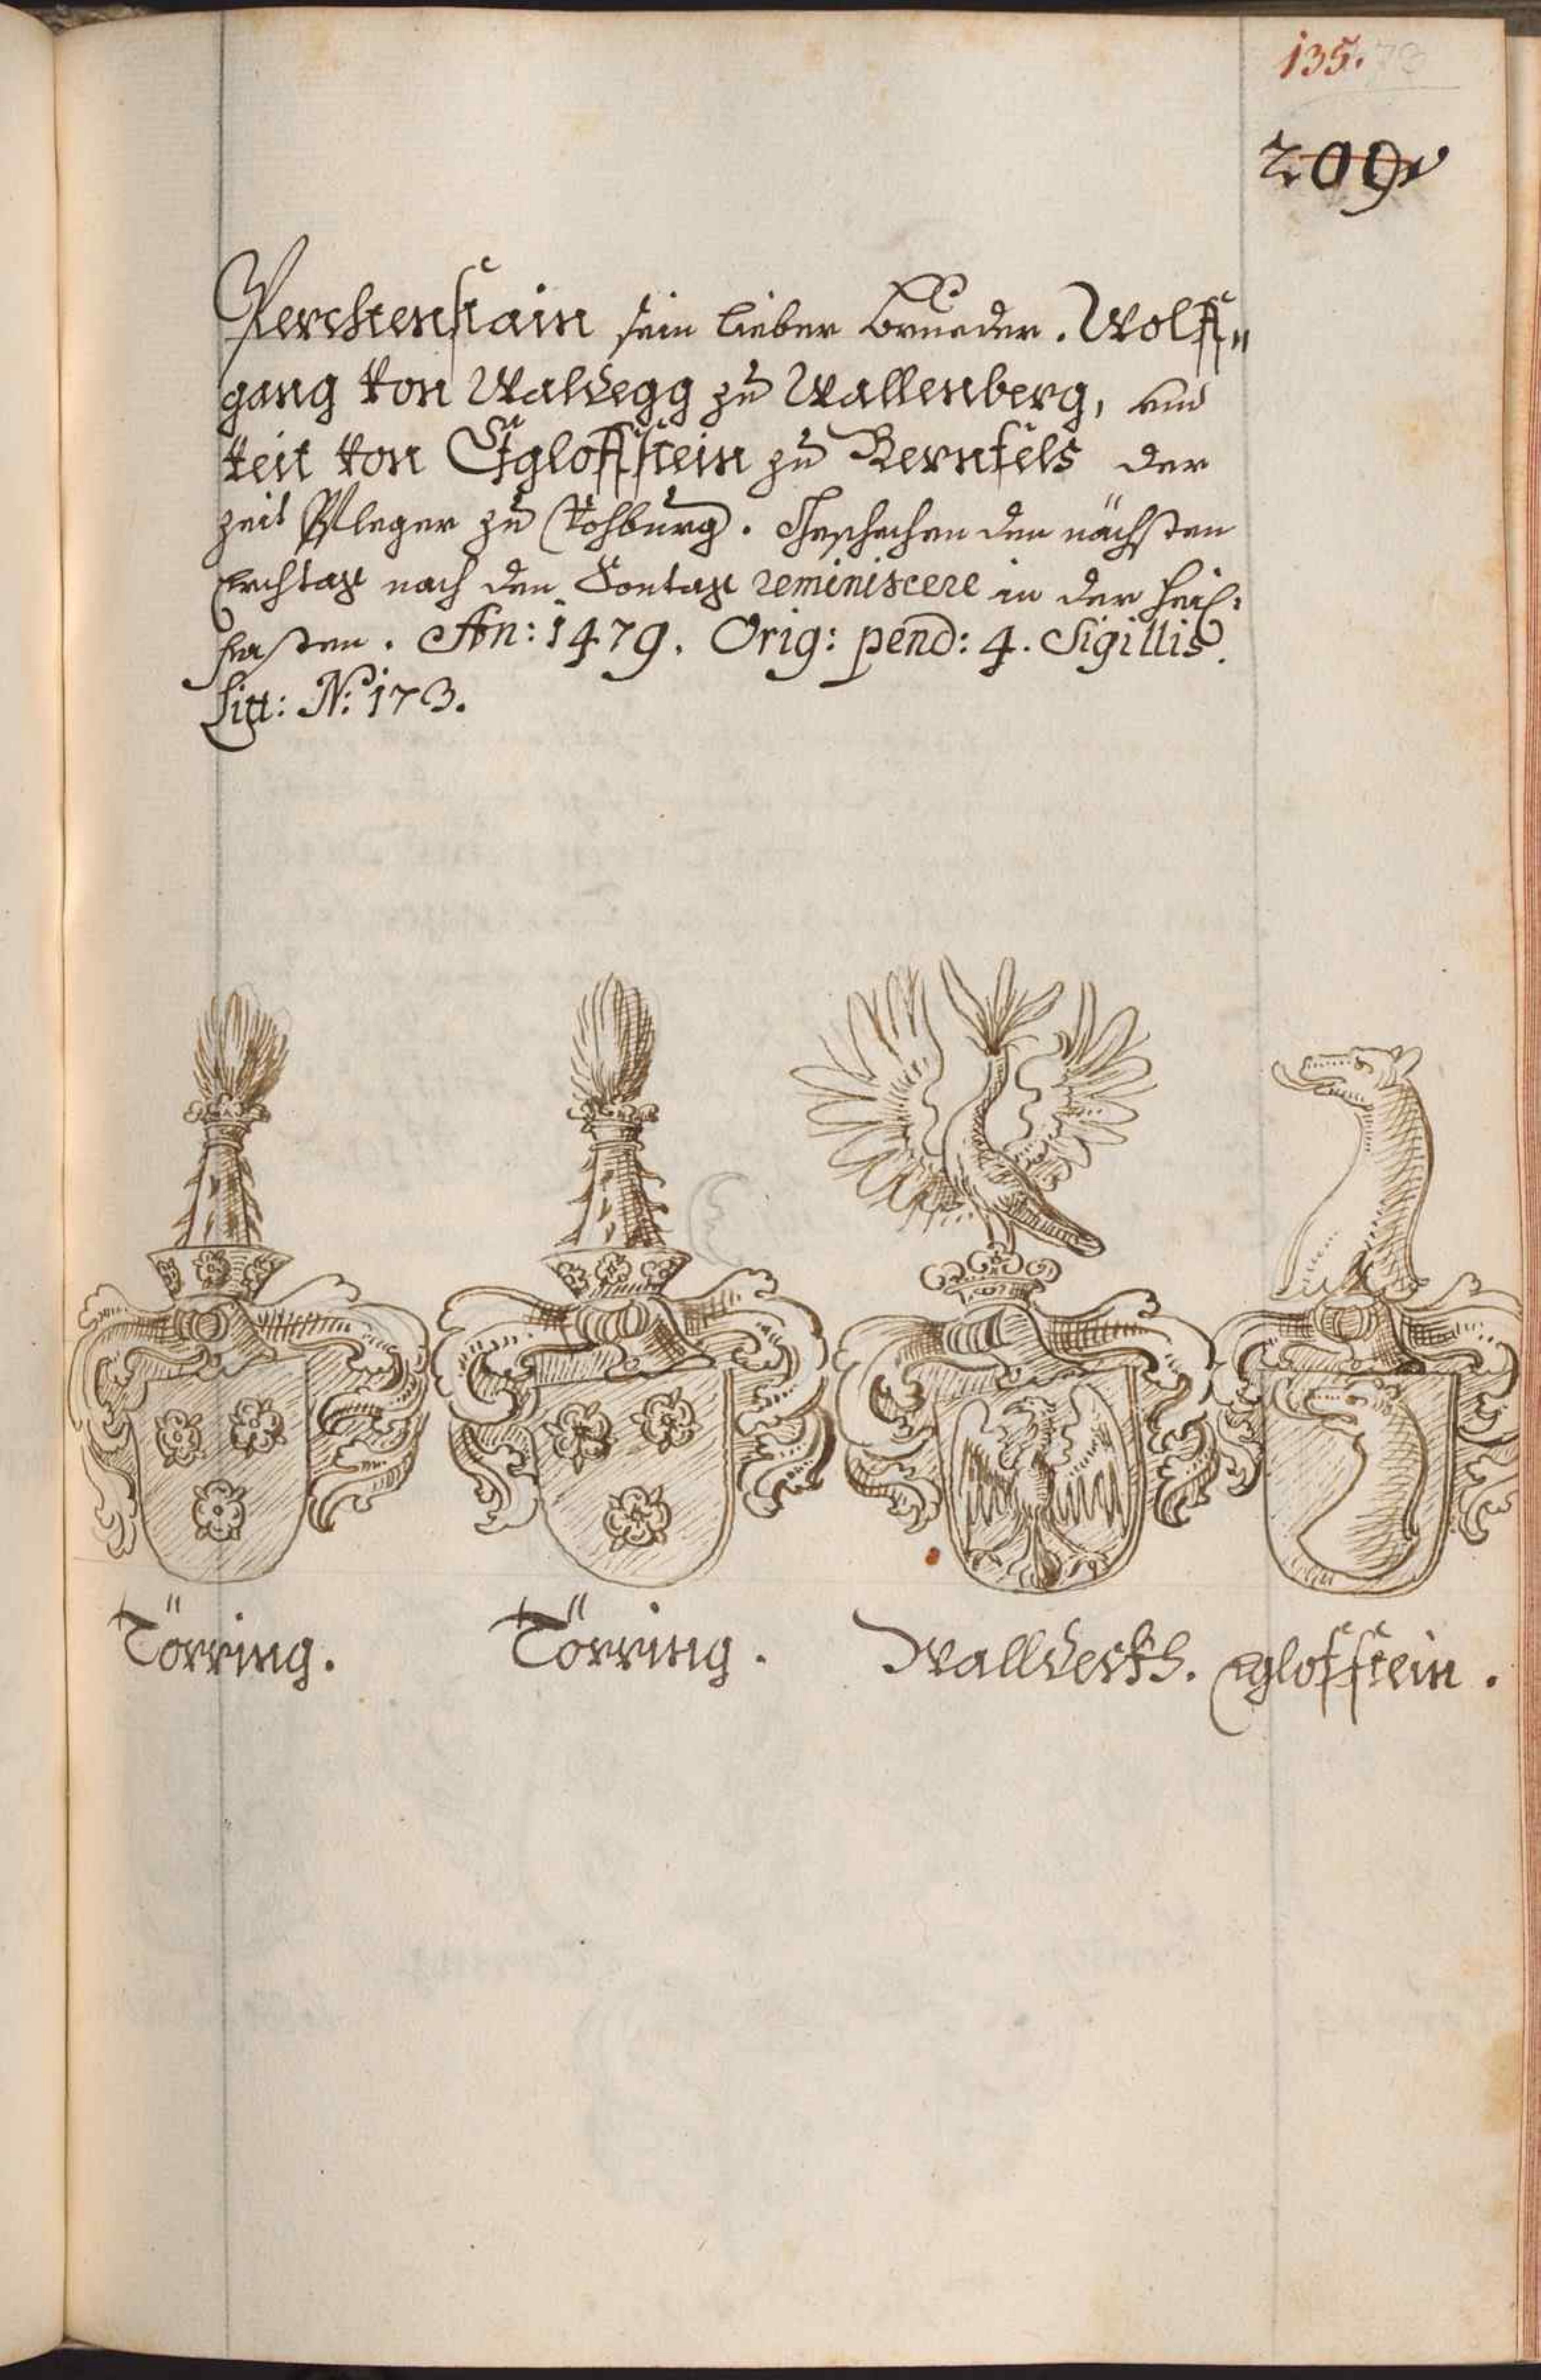 135. 73
209
Perchenstain sein lieber brueder. Wolff„
gang von Waldegg zu Wallenberg, und
Veit von Eglofstein zu Bernfels der
zeit Pfleger zu Vohburg. Geschehen den nächsten
Erchtag nach den Sontag reminiscere in der heil:
fasten. An: 1479. Orig: pend: 4. Sigillis.
Litt: N: 173.
Törring. Törring. Walldeckh. Eglofstein.